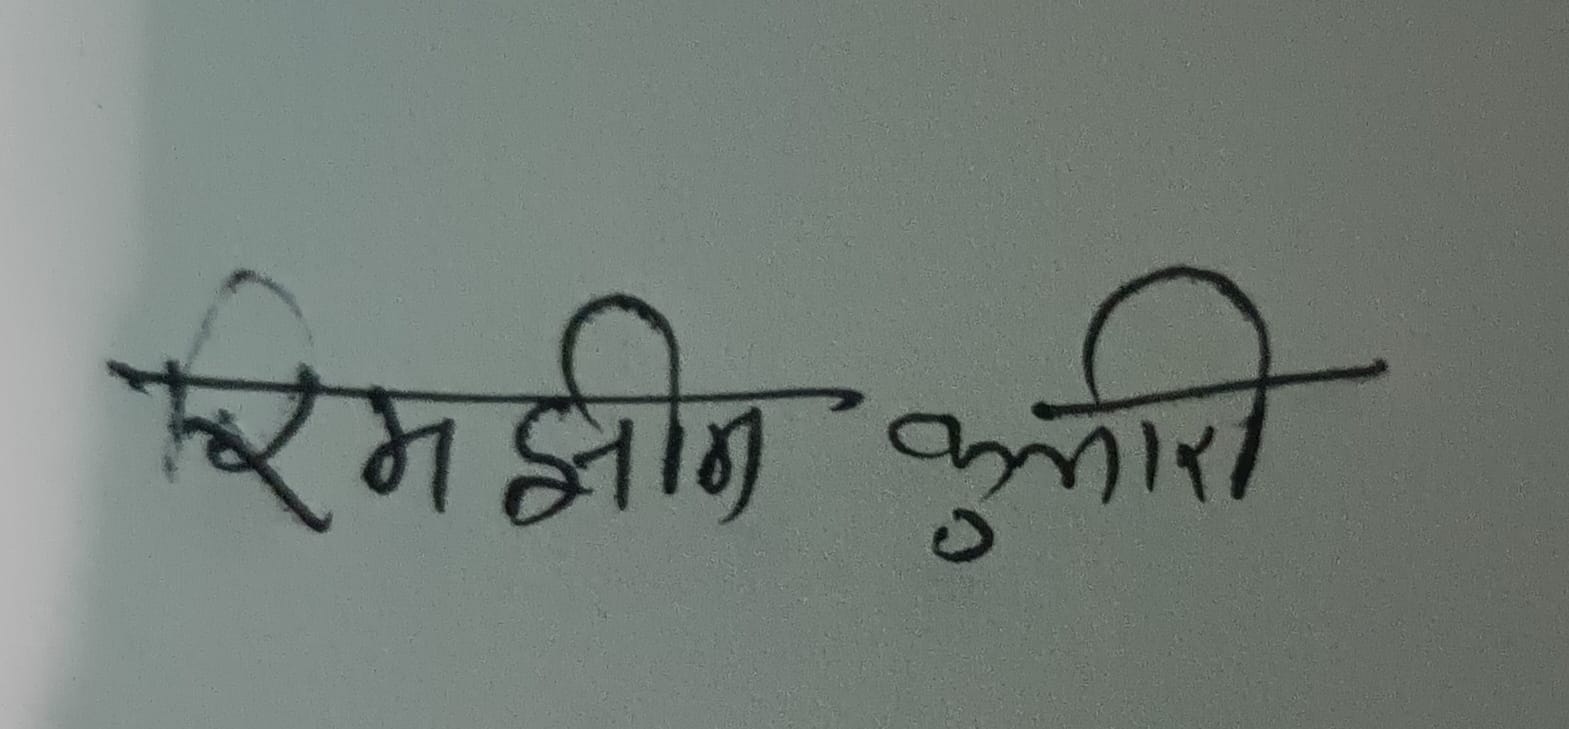 रिमझीम कुमारी